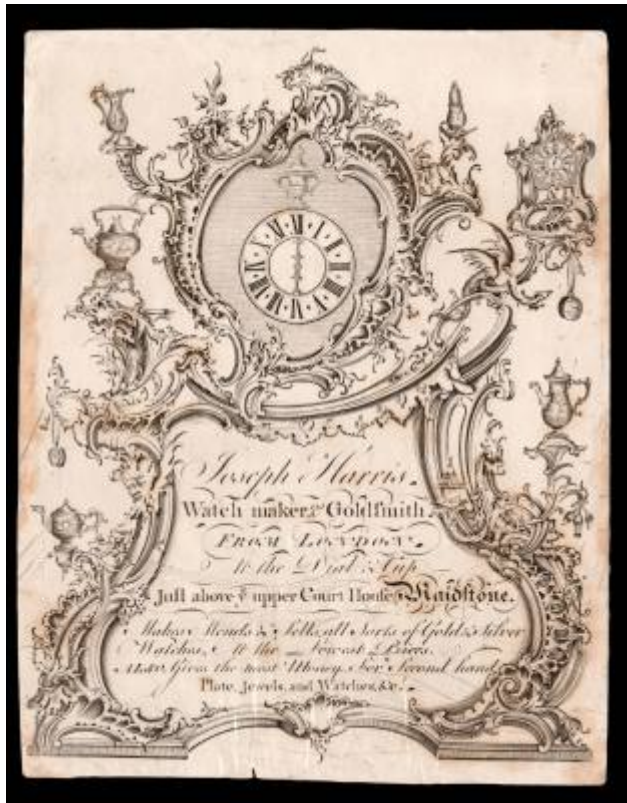 Joseph Harris.
Watch maker & Goldsmith
FROM LONDON
to the Dial & Cup
Just above yͤ upper Court House Maidstone.
Makes Mends & Sells all Sorts of Gold & Silver
Watches, At the Lowest Prices.
Also Gives the most Money for Second hand
Plate, Jewels, and Watches, &c.